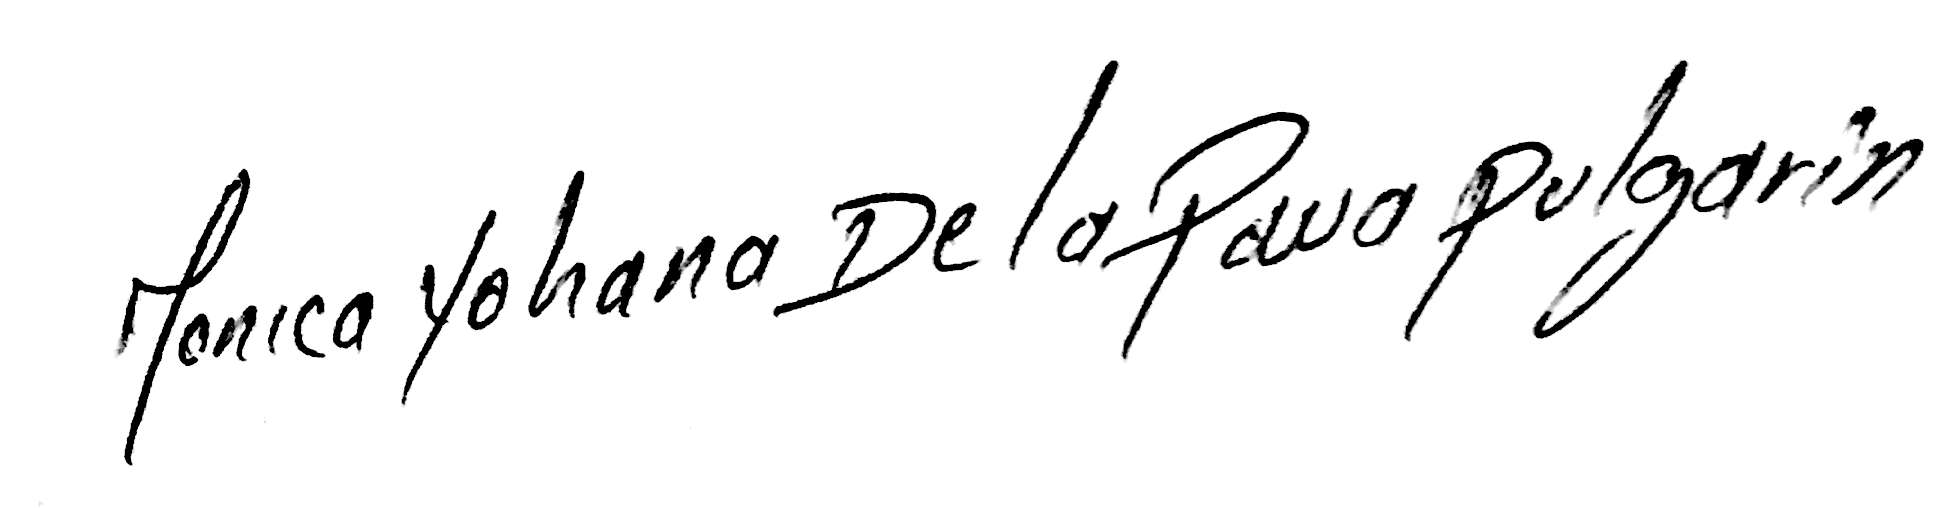 Monica Yohana De la Pava Pulgarin